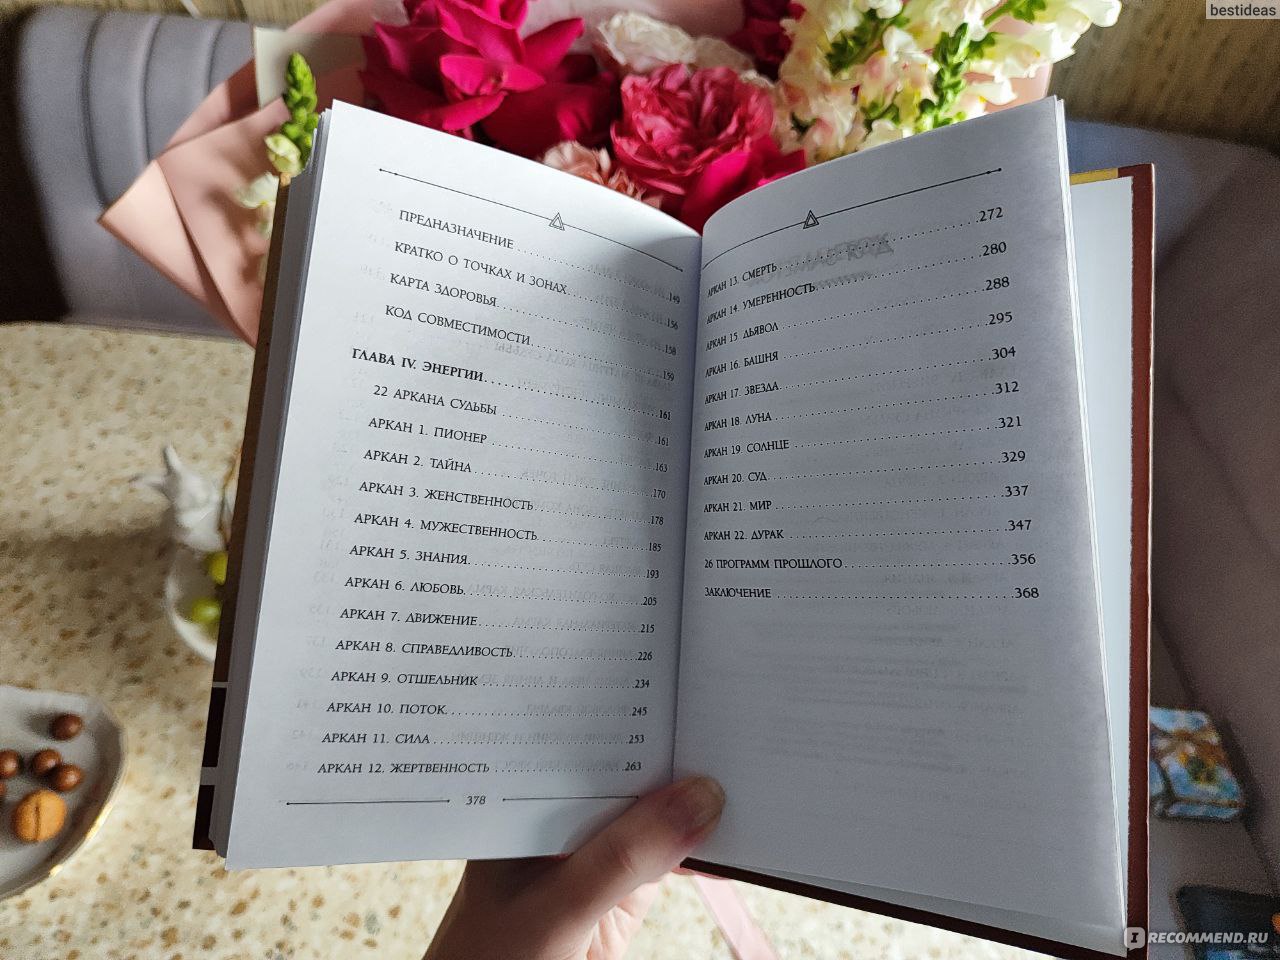 bestideas
ПРЕДНАЗНАЧЕНИЕ.....149
КРАТКО О ТОЧКАХ И ЗОНАХ.....156
КАРТА ЗДОРОВЬЯ.....158
КОД СОВМЕСТИМОСТИ.....159
ГЛАВА IV. ЭНЕРГИИ.....161
22 АРКАНА СУДЬБЫ.....161
АРКАН 1. ПИОНЕР.....163
АРКАН 2. ТАЙНА.....170
АРКАН 3. ЖЕНСТВЕННОСТЬ.....178
АРКАН 4. МУЖЕСТВЕННОСТЬ.....185
АРКАН 5. ЗНАНИЯ.....193
АРКАН 6. ЛЮБОВЬ.....205
АРКАН 7. ДВИЖЕНИЕ.....215
АРКАН 8. СПРАВЕДЛИВОСТЬ.....226
АРКАН 9. ОТШЕЛЬНИК.....234
АРКАН 10. ПОТОК.....245
АРКАН 11. СИЛА.....253
АРКАН 12. ЖЕРТВЕННОСТЬ.....263
378
АРКАН 13. СМЕРТЬ.....272
АРКАН 14. УМЕРЕННОСТЬ.....280
АРКАН 15. ДЬЯВОЛ.....288
АРКАН 16. БАШНЯ.....295
АРКАН 17. ЗВЕЗДА.....304
АРКАН 18. ЛУНА.....312
АРКАН 19. СОЛНЦЕ.....321
АРКАН 20. СУД.....329
АРКАН 21. МИР.....337
АРКАН 22. ДУРАК.....347
26 ПРОГРАММ ПРОШЛОГО.....356
ЗАКЛЮЧЕНИЕ.....368
IRECOMMEND.RU